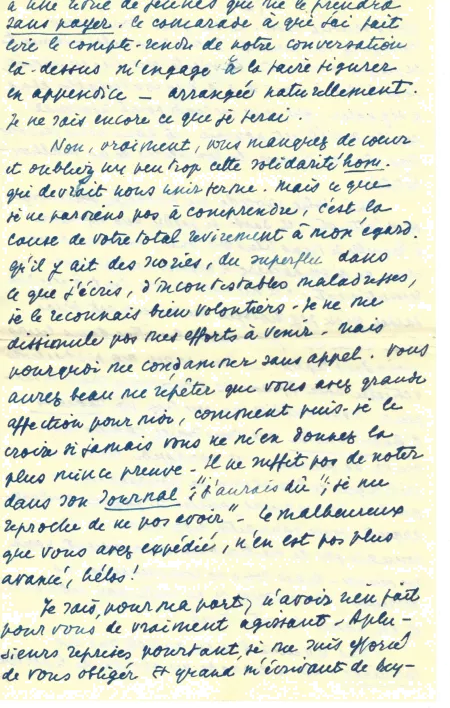 à une revue de jeunes qui me le prendra
sans payer. Le camarade à qui j'ai fait
lire le compte-rendu de notre conversation
là-dessus m'engage à la faire figurer
en appendice — arrangée naturellement.
Je ne sais encore ce que je ferai.
Non, vraiment, vous manquez de cœur
et oubliez un peu trop cette solidarité hom.
qui devrait nous unir ferme. Mais ce que
je ne parviens pas à comprendre, c'est la
cause de votre total revirement à mon égard.
Qu'il y ait des scories, du superflu dans
ce que j'écris, d'incontestables maladresses,
je le reconnais bien volontiers - Je ne me
dissimule pas mes efforts à venir - mais
pourquoi me condamner sans appel. Vous
aurez beau me répéter que vous avez grande
affection pour moi, comment puis-je le
croire si jamais vous ne m'en donnez la
plus mince preuve - Il ne suffit pas de noter
dans son Journal ; "j'aurais dû"; je me
reproche de ne pas avoir" Le malheureux
que vous avez expédié, n'en est pas plus
avancé, hélas!
Je sais, pour ma part, n'avoir rien fait
pour vous de vraiment agissant - A plu-
sieurs reprises pourtant, je me suis efforcé
de vous obliger Et quand m'écrivant de